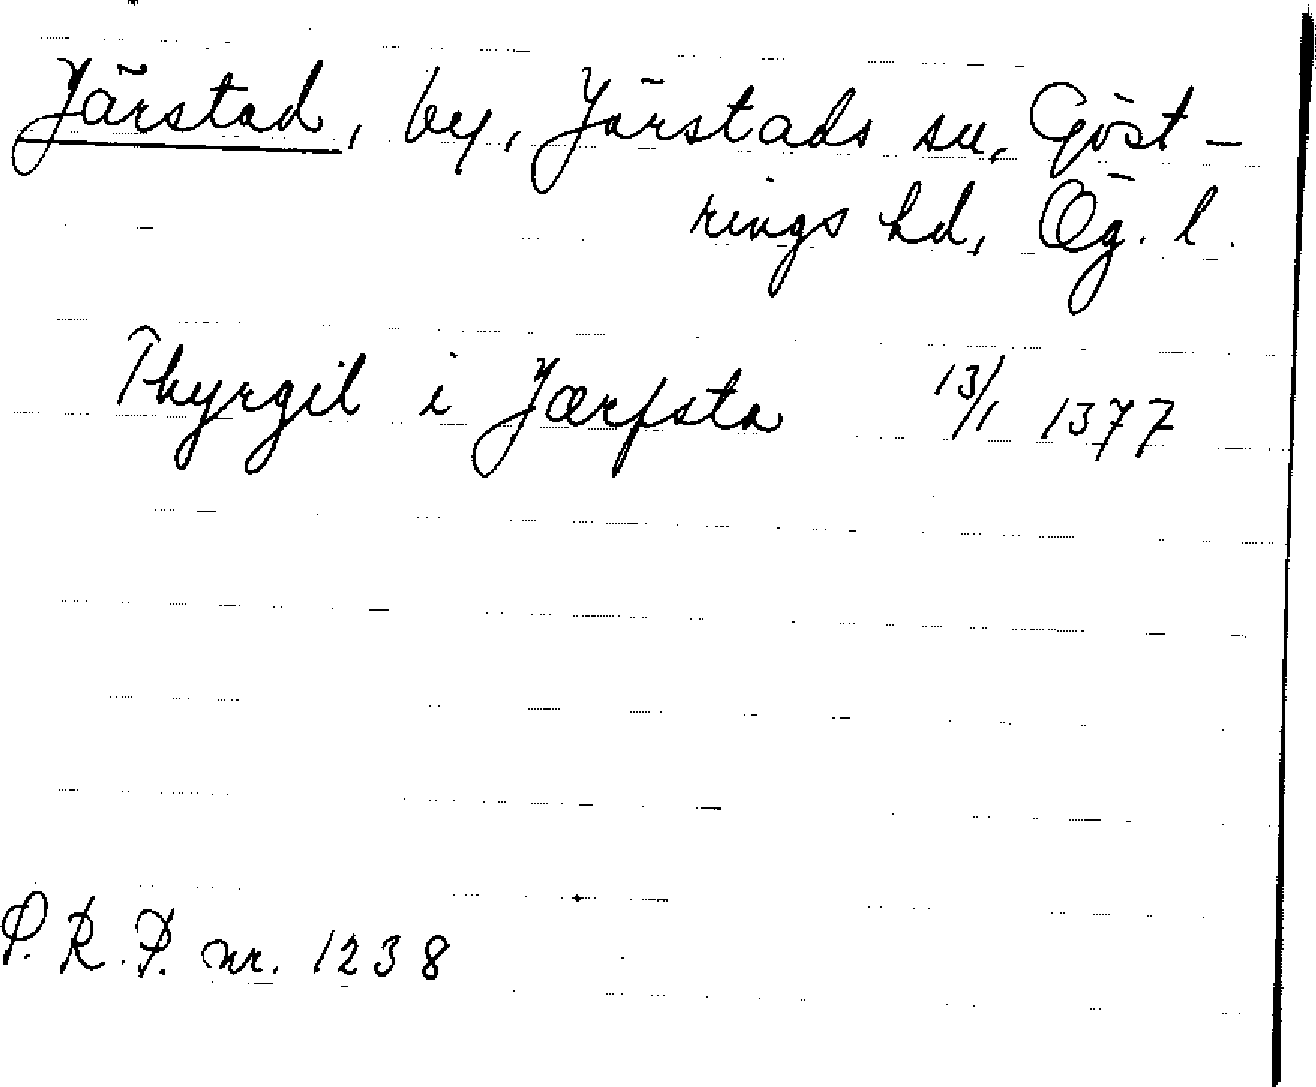 Järstad, by, Järstads sn, Göst-
rings hd, Ög. l.
Thyrgil i Jærfsta 13/1 1377
P.R.P. nr. 1238